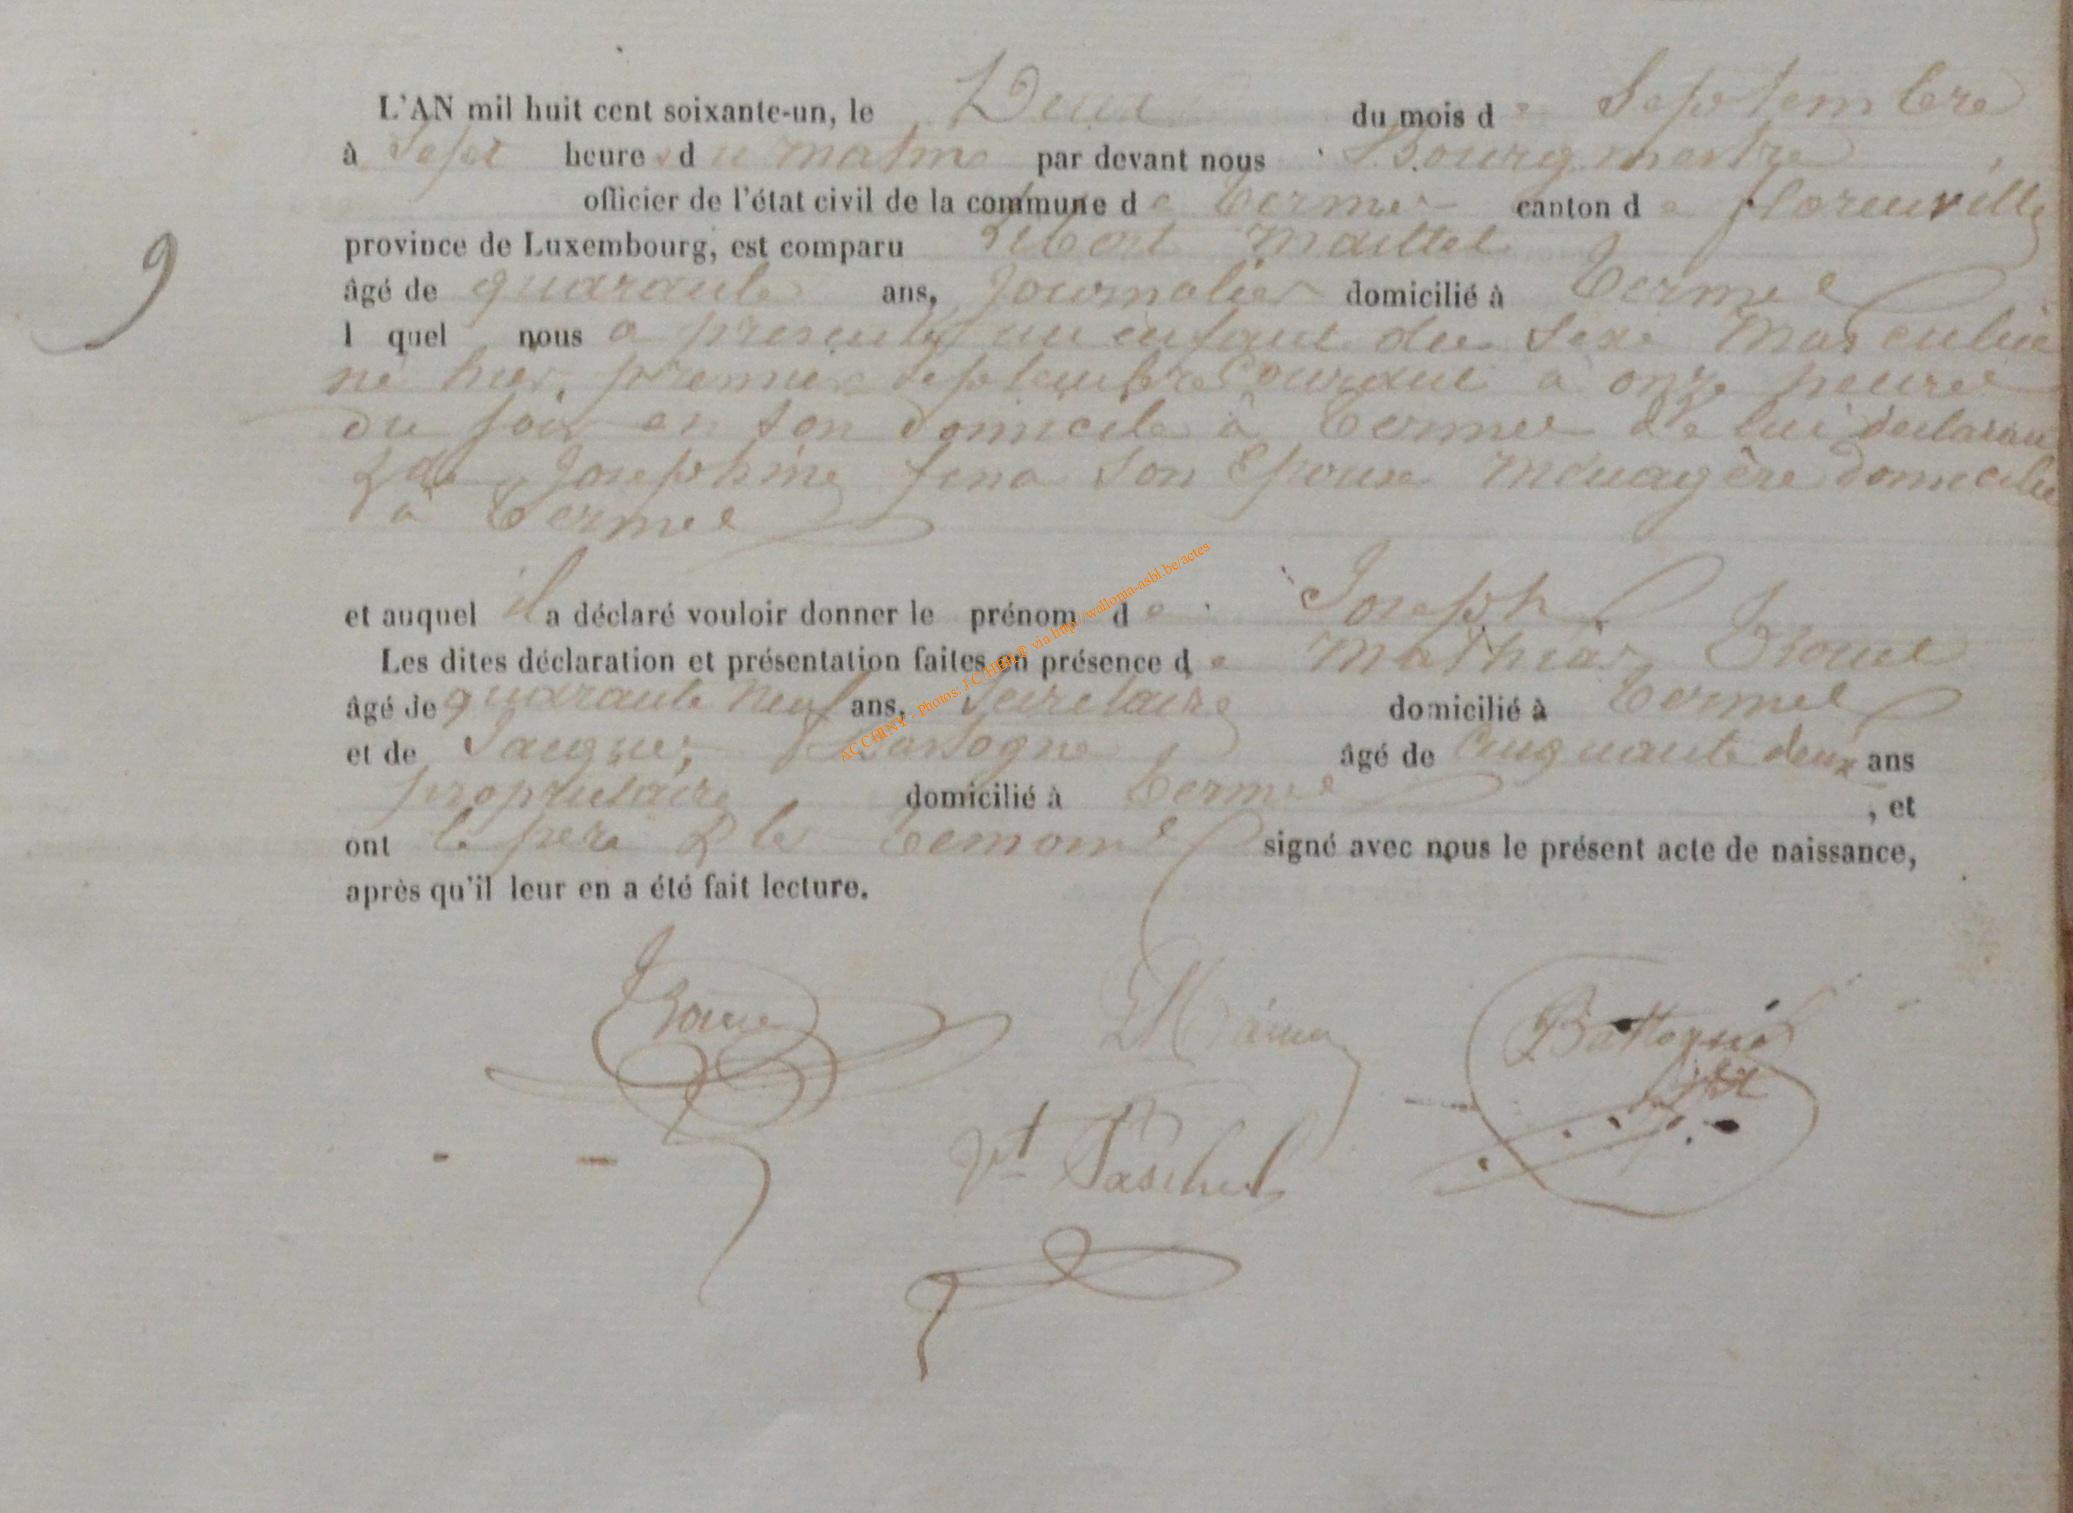 L'AN mil huit cent soixante-un, le Deux du mois de Septembre
à Sept heures du matin par devant nous Bourgmestre
officier de l'état civil de la commune de Termes canton de florenville
province de Luxembourg, est comparu
âgé de quarante ans, Journalier domicilié à Termes
9
l quel nous a presenté un enfant du Sexe Masculin
né hier, premier Septembre Courant à onze heures
du soir en son domicile à Termes de lui déclarant
& de Josephine son Epouse Ménagère domiciliée
à Termes
et auquel il a déclaré vouloir donner le prénom de Joseph
Les dites déclaration et présentation faites en présence de Mathias
âgé de quarante neuf ans, Secretaire domicilié à Termes
et de Jacques Bastogne âgé de Cinquante deux ans
propriétaire domicilié à Termes , et
ont le père & les temoins signé avec nous le présent acte de naissance,
après qu'il leur en a été fait lecture.
ACCHINY - Photos: J.C.HER.© via http://wallonia-asbl.be/actes